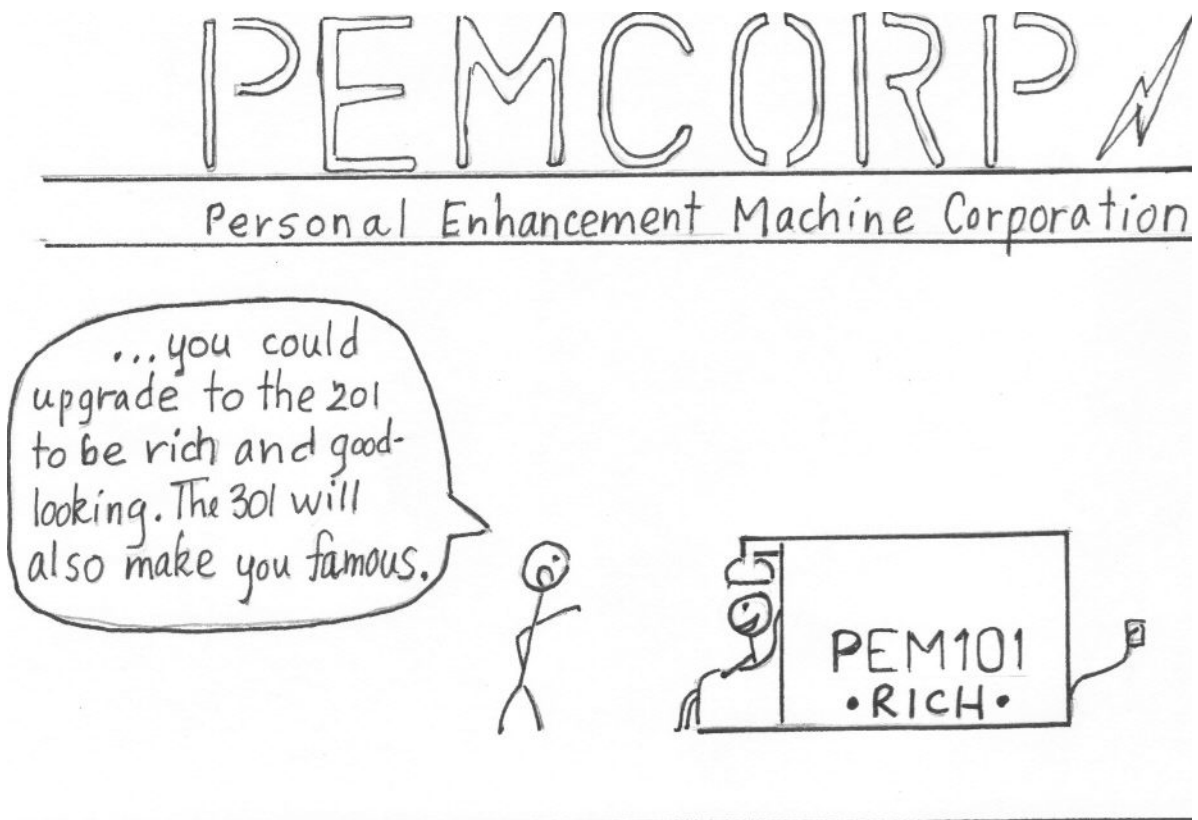 PEMCORP
Personal Enhancement Machine Corporation
...you could
upgrade to the 201
to be rich and good-
looking. The 301 will
also make you famous.
PEM101
•RICH•